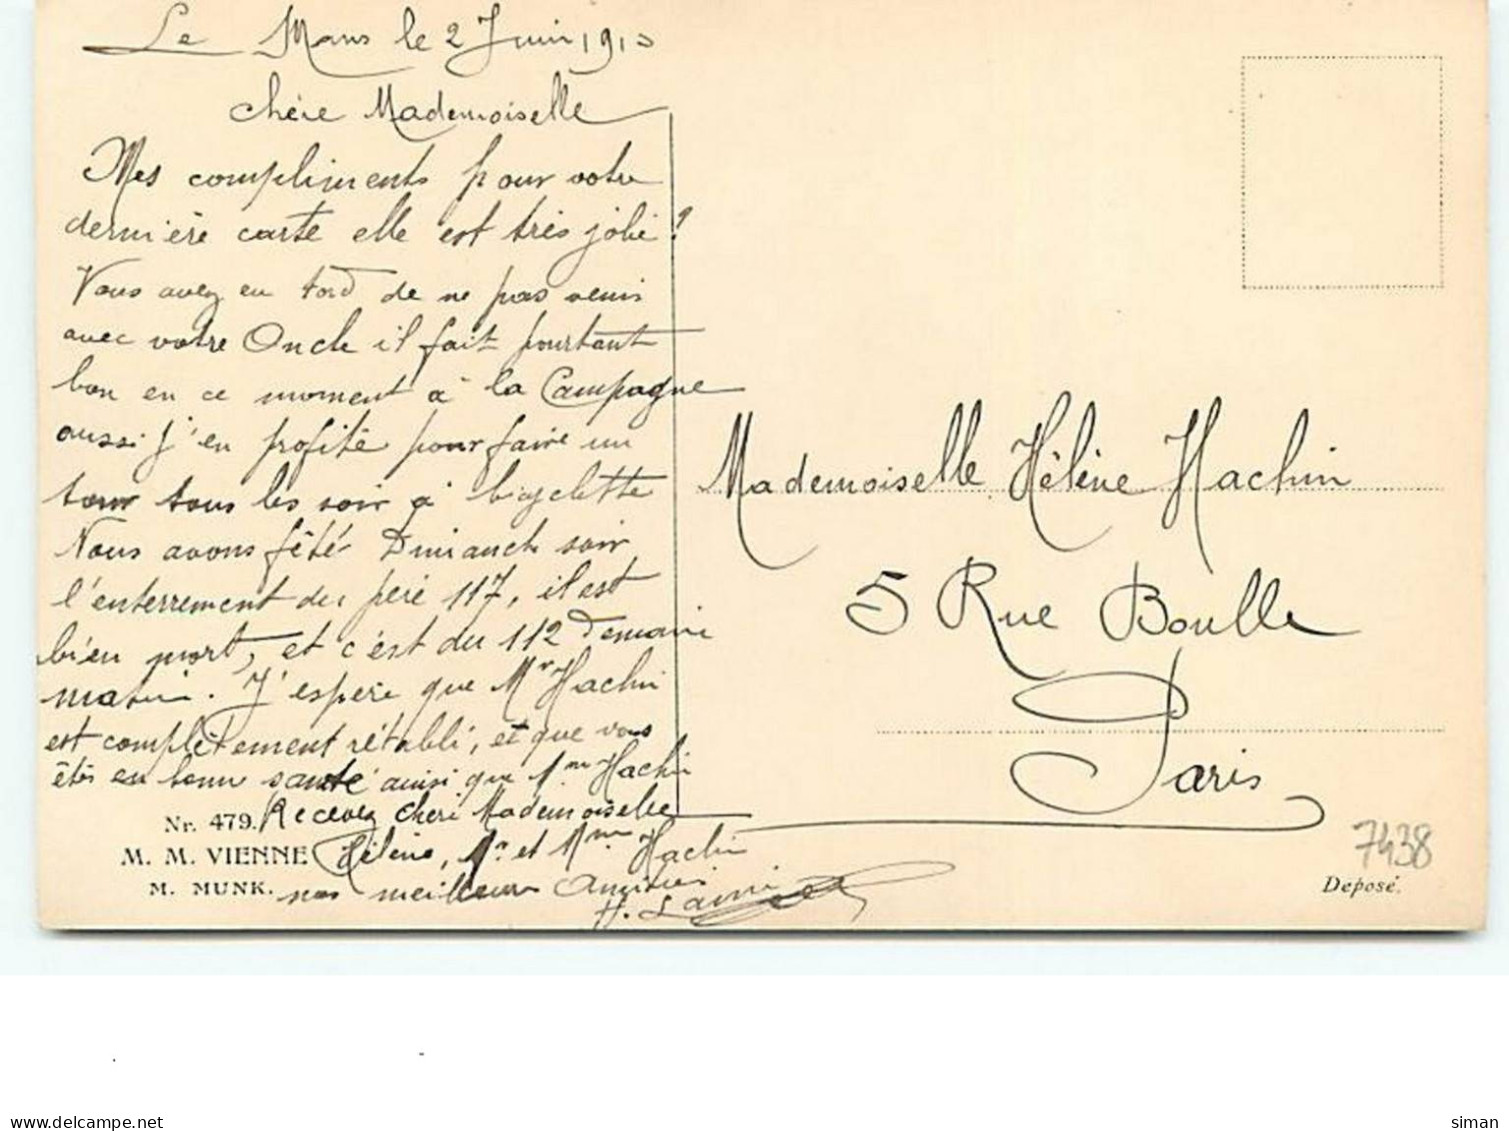 Le Mans le 2 Juin 1910
chère Mademoiselle
Mes compliments pour votre
dernière carte elle est très jolie!
Vous avez eu tord de ne pas venir
avec votre Oncle il fait pourtant
bon en ce moment à la Campagne
aussi j'en profite pour faire un
tour tous les soir à bicyclette
Nous avons fêté Dimanche soir
l'enterrement du père 117, il est
bien mort, et c'est du 112 Demain
matin. J'espère que Mr Hachin
est complètement rétabli, et que vous
êtes en bonne santé ainsi que Mme Hachin
Recevez chère Mademoiselle
Hélène, Mr et Mme Hachin
nos meilleurs Amitiés
H.
Nr. 479.
M. M. VIENNE
M. MUNK.
Mademoiselle Hélène Hachin
5 Rue Boulle
Paris
7438
Deposé.
www.delcampe.net
siman